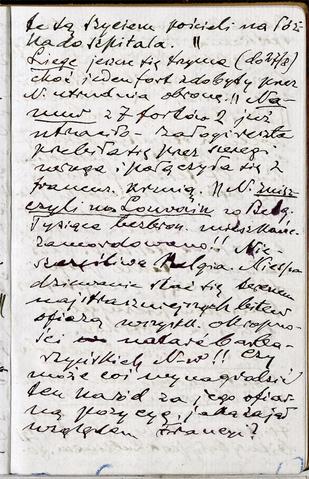 te są szyciem pościeli na łóż-
na do szpitala. ||
Liege jeszcze się trzyma (do 27/8)
choć jeden fort zdobyty przez
N. utrudnia obronę. || Na-
mur z 7 fortów 2 już
utraciło - załoga reszta
przebiła się przez szeregi
wroga i połączyła się z
francus. armią. || N. znisz-
czyli m. Louvain w Belg.
Tysiące bezbron. mieszkańc.
zamordowano!! Nie-
szczęśliwa Belgia. Niespo-
dziewanie stał się terenem
najstraszniejszych bitew
ofiarą wszystk. okropno-
ści natarć barba-
rzyńskich N-w!! Czy
może coś wynagrodzić
ten naród za jego ofiar-
ną pozycję, jaką zajął
względem Francyi?